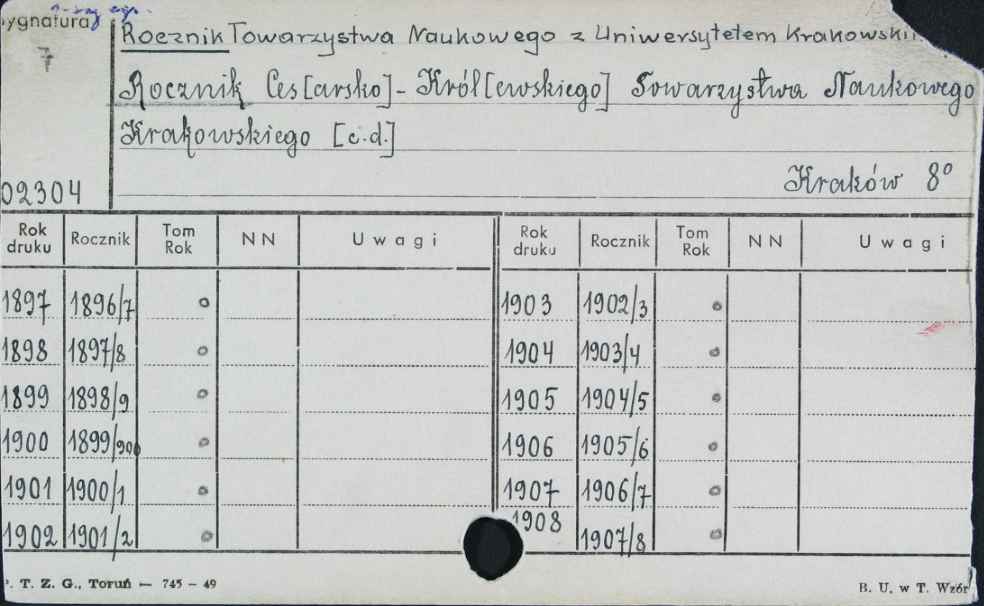 ygnatura
7
02304
Rocznik Towarzystwa Naukowego z Uniwersytetem Krakowski
Rocznik Ces[arsko]-Król[ewskiego] Towarzystwa Naukowego
Krakowskiego [c.d.]
Kraków 8°
Rok druku Rocznik Tom Rok NN Uwagi Rok druku Rocznik Tom Rok NN Uwagi
1897 1896/7 o 1903 1902/3 o
1898 1897/8 o 1904 1903/4 o
1899 1898/9 o 1905 1904/5 o
1900 1899/900 o 1906 1905/6 o
1901 1900/1 o 1907 1906/7 o
1902 1901/2 o 1908 1907/8 o
P. T. Z. G., Toruń — 745 - 49 B. U. w T. Wzór